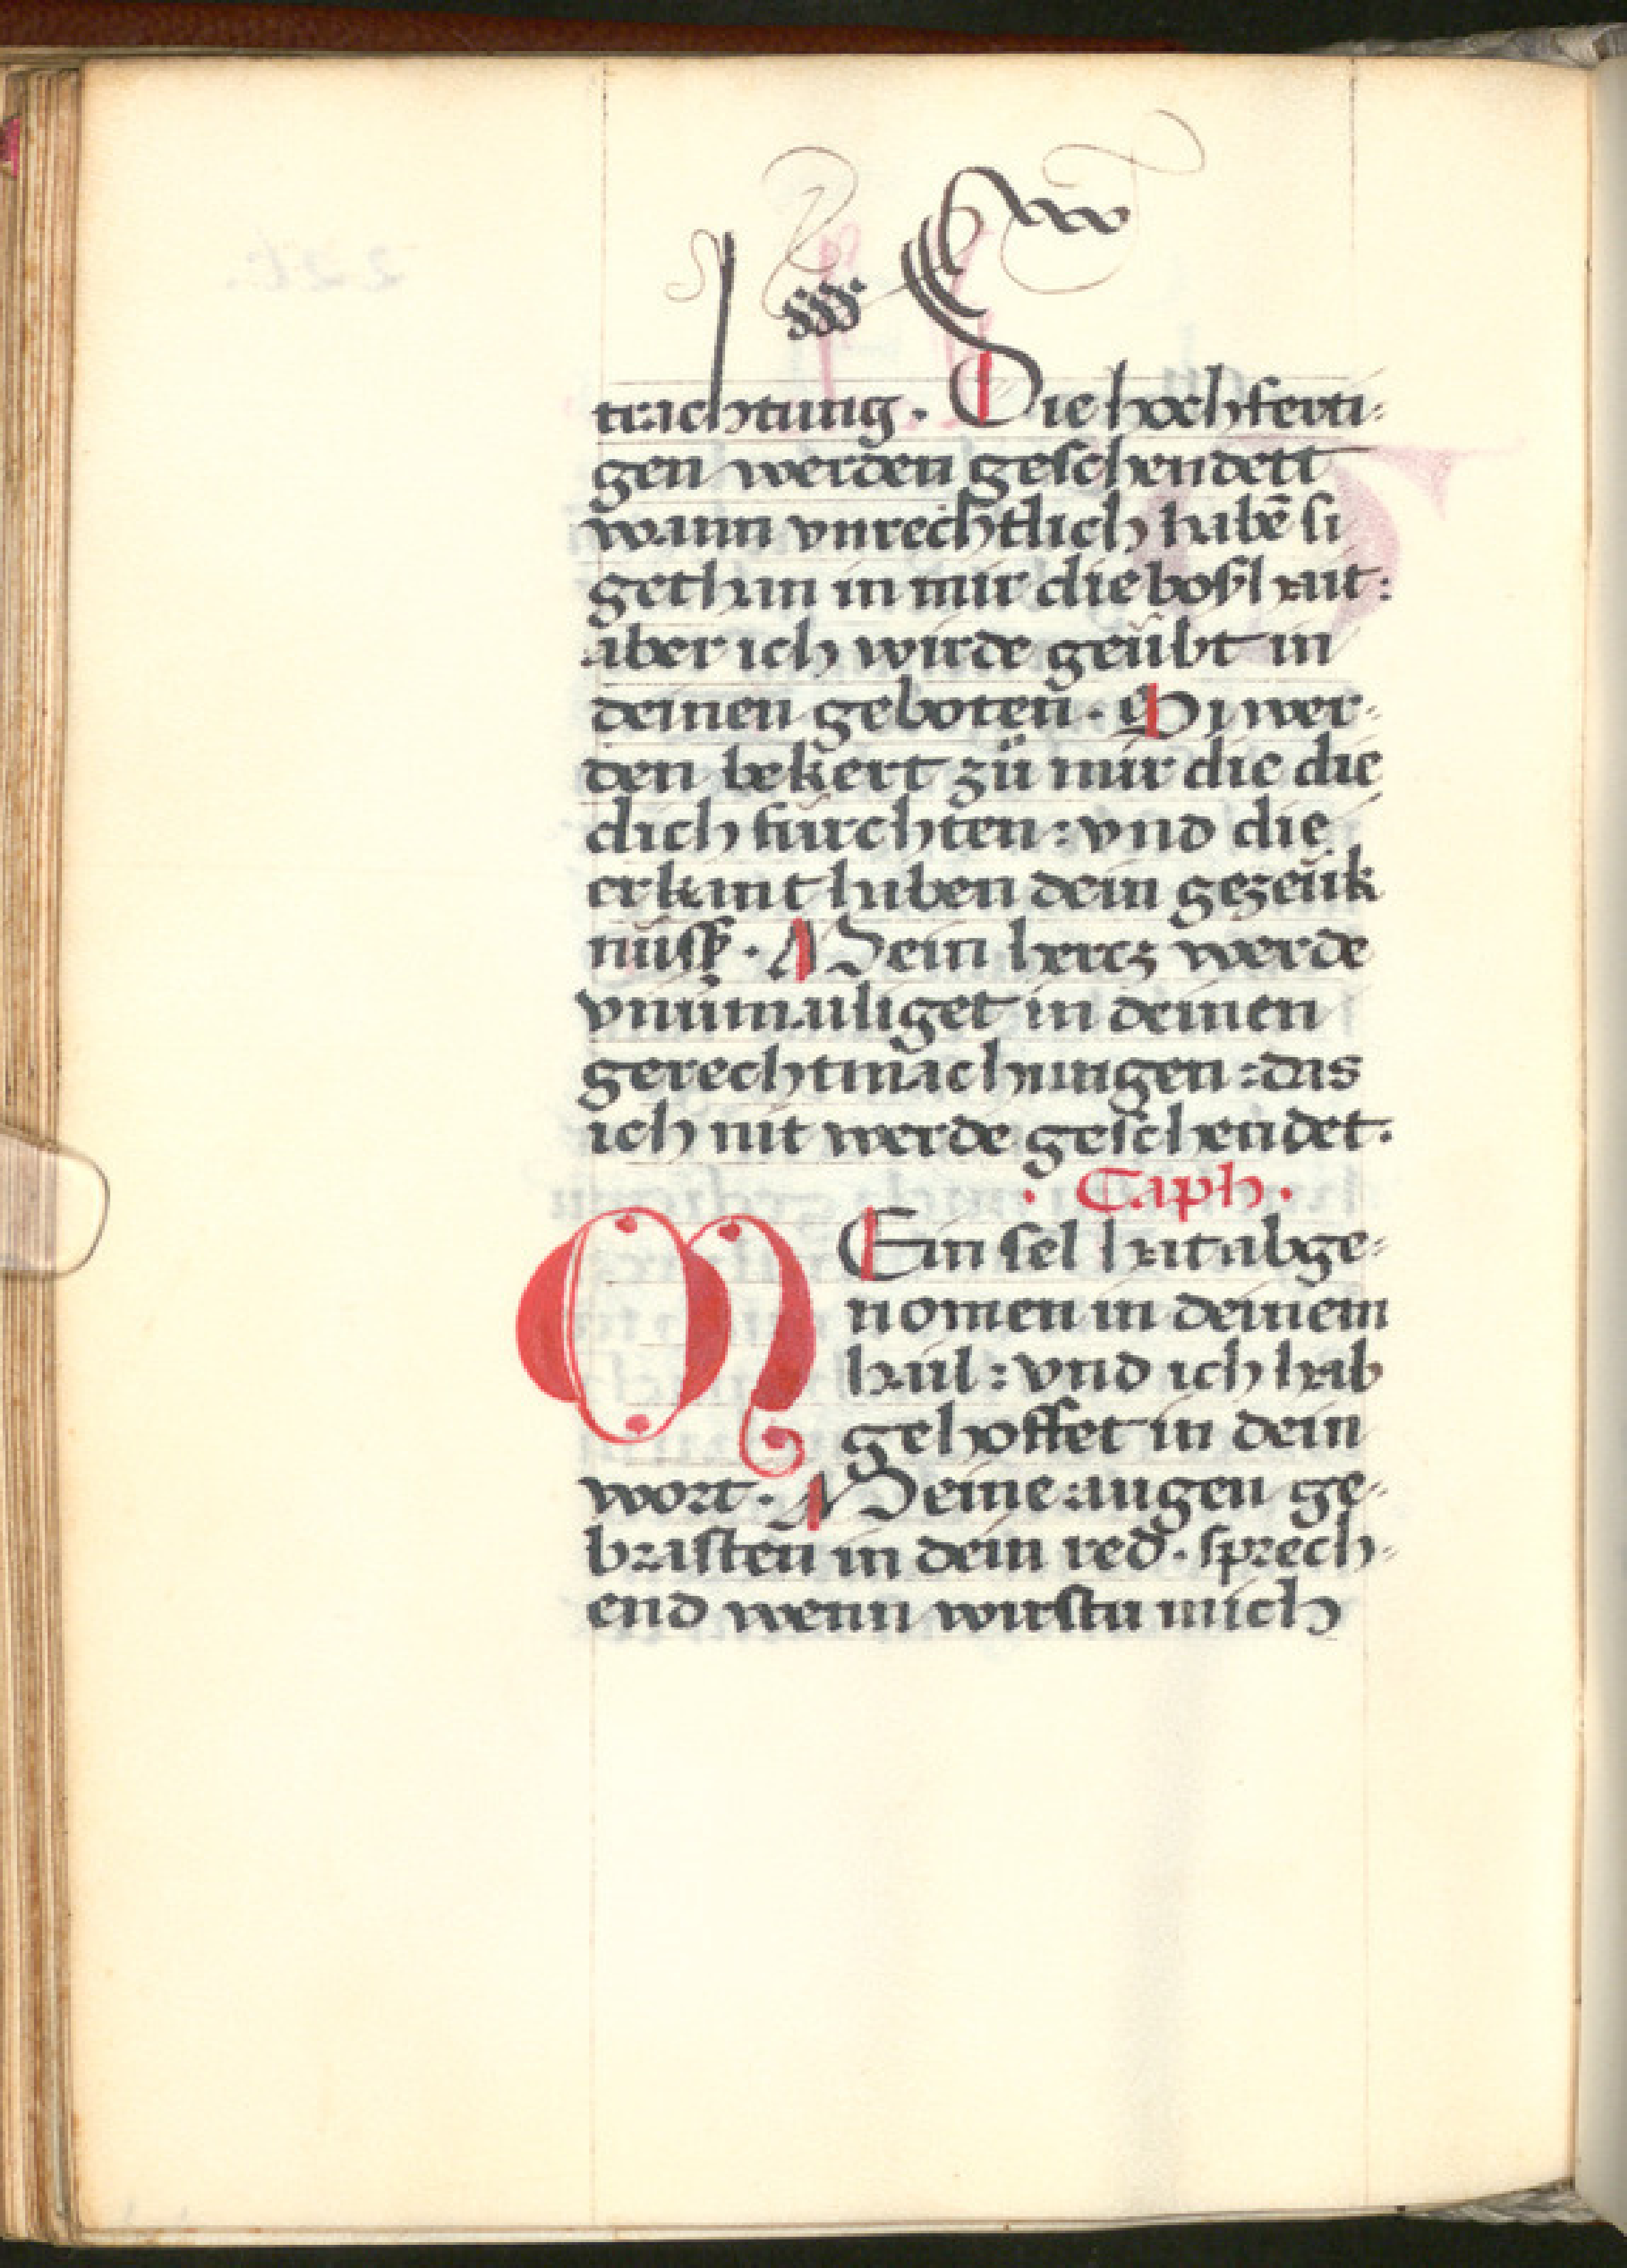 trachtung. Die hochferti-
gen werden geschendett
wann vnrechtlich habē si
gethan in mir die boßhait:
aber ich wirde geübt in
deinen geboten. Si wer-
den bekert zü mir die die
dich fürchten: vnd die
erkant haben dein gezeük
nüss. Mein hercz werde
vnuermailiget in deinen
gerechtmachungen: das
ich nit werde geschendet.
. Caph .
MEin sel hat abge-
nomen in deinem
hail: vnd ich hab
gehoffet in dein
wort. Meine augen ge-
brasten in dein red. sprech-
end wenn wirstu mich